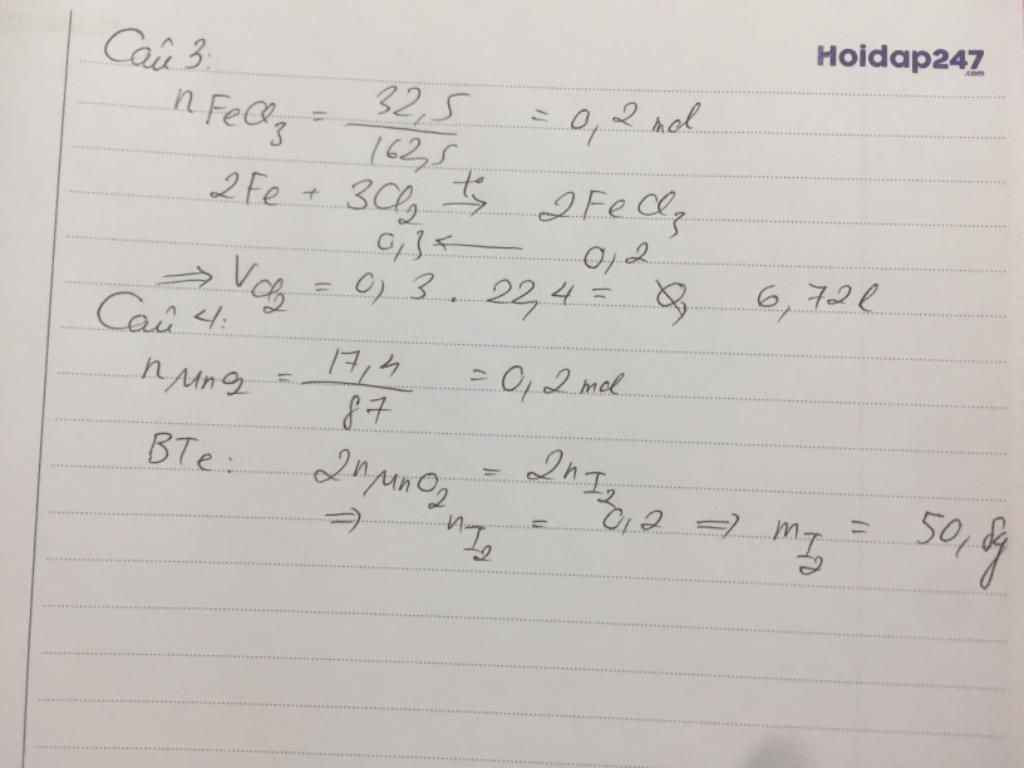 Câu 3:
Hoidap247
.com
nFeCl3 = 32,5 / 162,5 = 0,2 mol
2Fe + 3Cl2 t°→ 2FeCl3
0,3 ← 0,2
⇒ VCl2 = 0,3 . 22,4 = 6,72l
Câu 4:
nMnO2 = 17,4 / 87 = 0,2 mol
BTe: 2nMnO2 = 2nI2
⇒ nI2 = 0,2 ⇒ mI2 = 50,8g